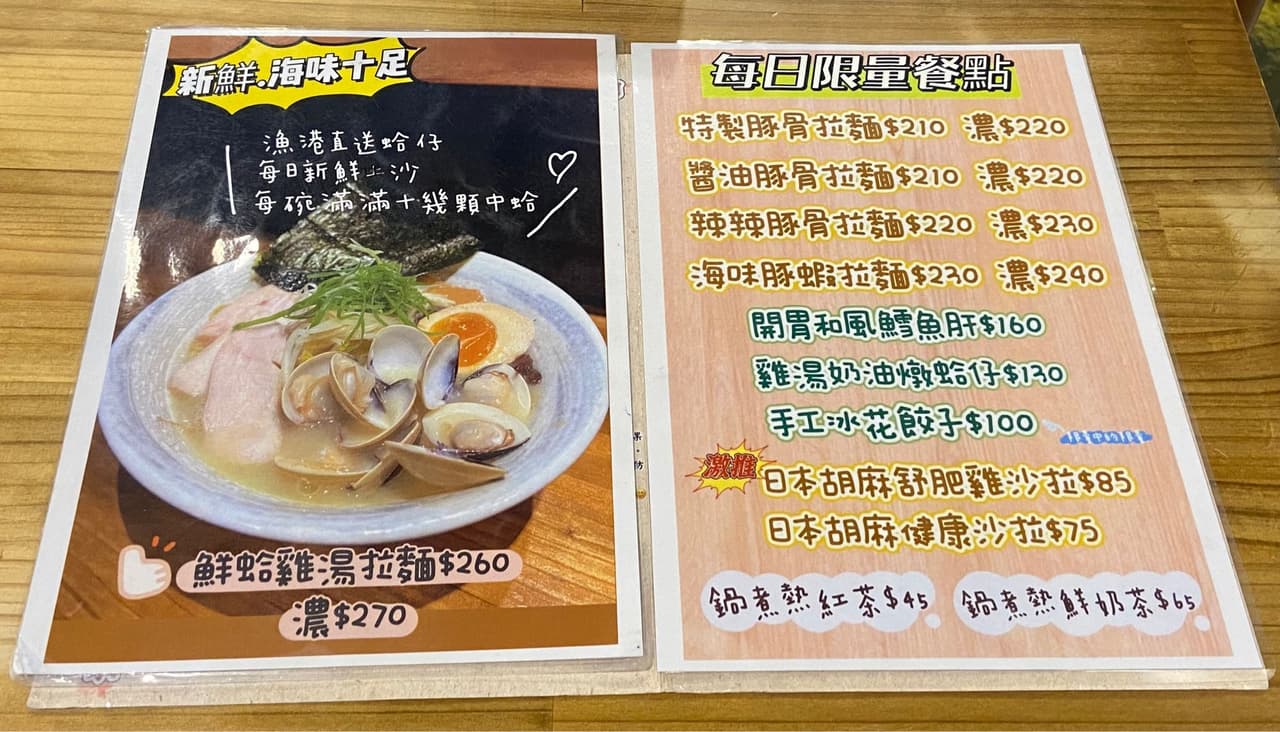 新鮮.海味十足
漁港直送蛤仔
每日新鮮 沙
每碗滿滿十幾顆中蛤
鮮蛤雞湯拉麵$260
濃$270
每日限量餐點
特製豚骨拉麵$210 濃$220
醬油豚骨拉麵$210 濃$220
辣辣豚骨拉麵$220 濃$230
海味豚蝦拉麵$230 濃$240
開胃和風鱈魚肝$160
雞湯奶油燉蛤仔$130
手工冰花餃子$100
限量中的限量
激推
日本胡麻舒肥雞沙拉$85
日本胡麻健康沙拉$75
鍋煮熱紅茶$45 鍋煮熱鮮奶茶$65